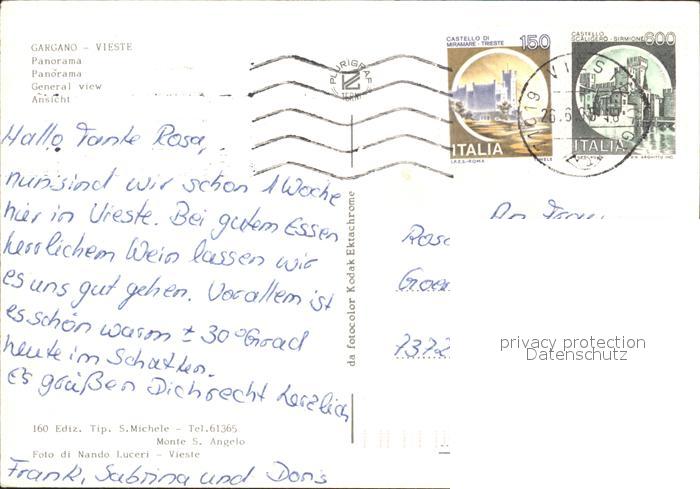 GARGANO - VIESTE
Panorama
Panorama
General view
Ansicht
PLURIGRAF
TERNI
CASTELLO DI
MIRAMARE - TRIESTE
150
ITALIA
I.P.Z.S.-ROMA
CASTELLO
SCALIGERO - SIRMIONE
600
ITALIA
VIES
Hallo Tante Rosa,
nun sind wir schon 1 Woche
hier in Vieste. Bei gutem Essen
herrlichem Wein lassen wir
es uns gut gehen. Vor allem ist
es schön warm ± 30° Grad
heute im Schatten.
Es grüßen Dich recht herzlich
Frank, Sabrina und Doris
da fotocolor Kodak Ektachrome
An Frau
Rosa
7372
privacy protection
Datenschutz
160 Ediz. Tip. S.Michele - Tel.61365
Monte S. Angelo
Foto di Nando Luceri - Vieste